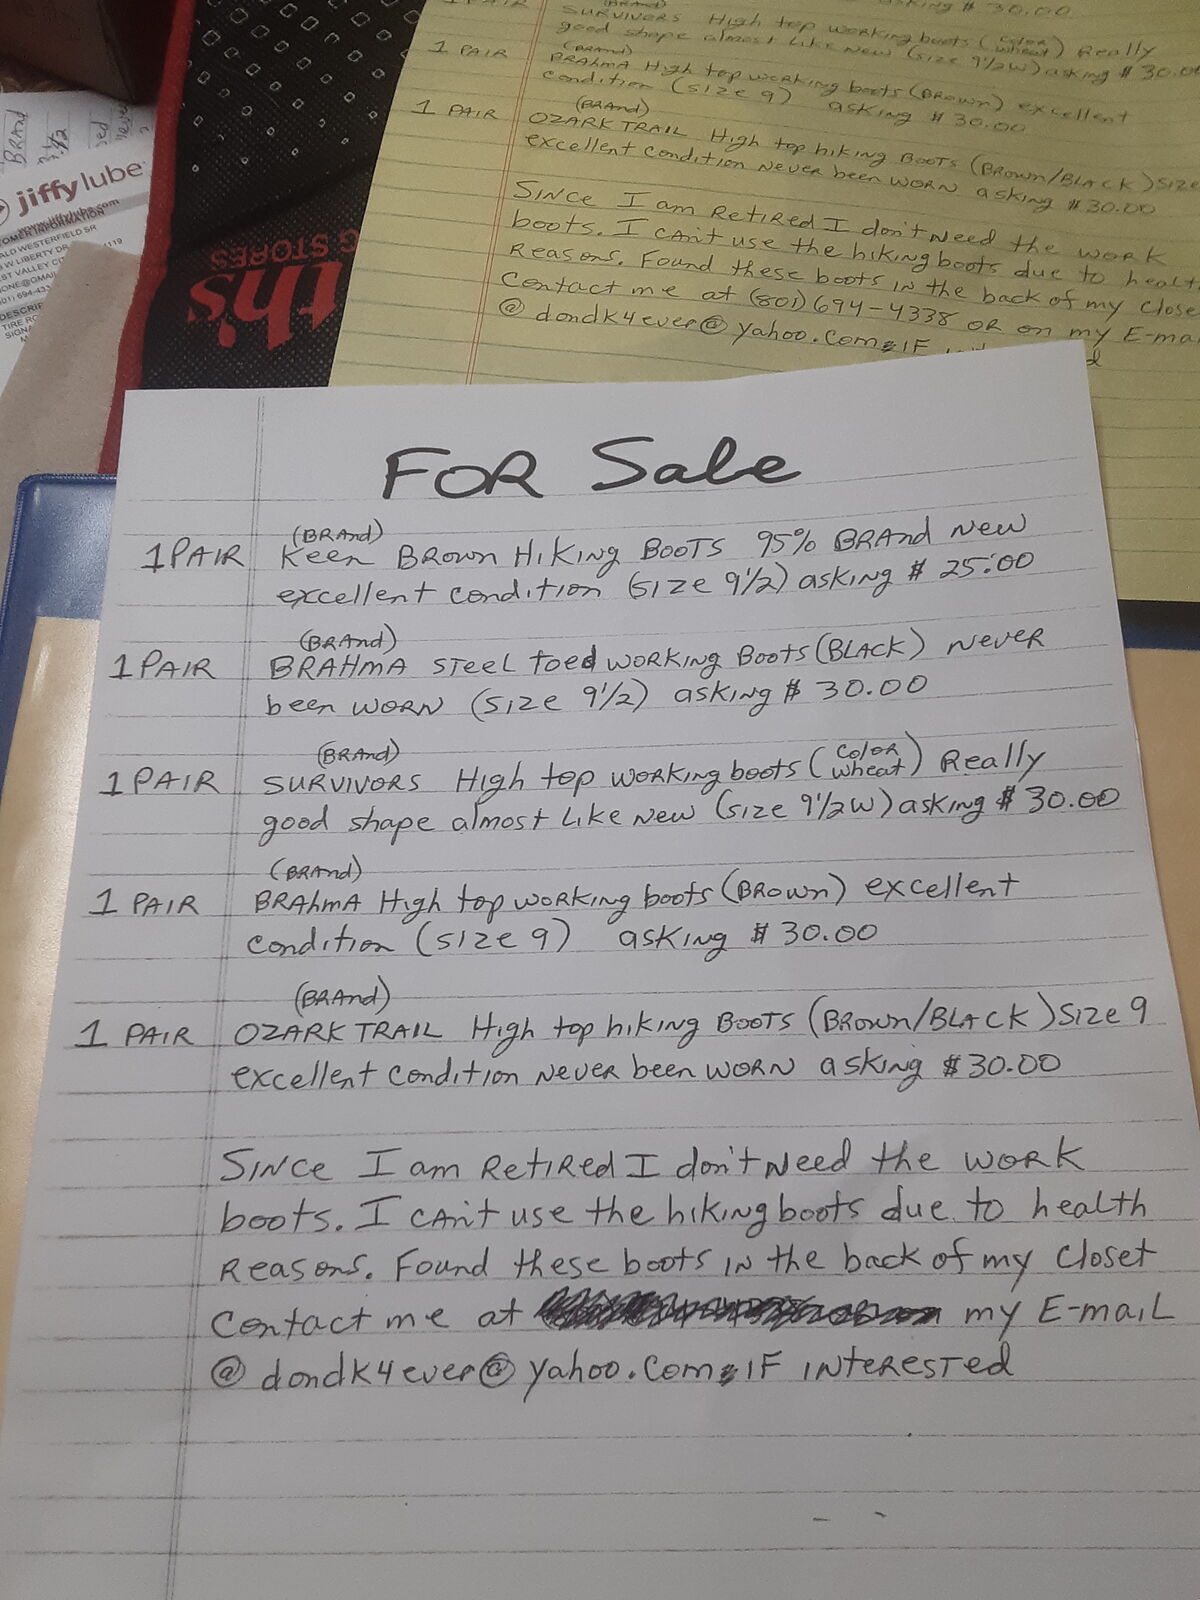 1 PAIR
(BRAND)
asking $ 30.00
SURVIVORS High top working boots (color wheat) Really
good shape almost Like New (size 9 1/2 W) asking $ 30.00
1 PAIR
(BRAND)
BRAHMA High top working boots (BROWN) excellent
condition (size 9) asking $ 30.00
1 PAIR
(BRAND)
OZARK TRAIL High top hiking Boots (BROWN/BLACK) Size
excellent condition Never been WORN asking $ 30.00
SINCE I am Retired I don't Need the work
boots. I can't use the hiking boots due to healt
Reasons. Found these boots in the back of my Close
Contact me at (801) 694-4338 OR on my E-mai
@ dondk4ever@yahoo.com; IF
BRAND
jiffylube
www.jiffylube.com
OMER INFORMATION
ALD WESTERFIELD SR
W LIBERTY DR
4119
ST VALLEY CI
ONE@GMAI
01) 694-433
DESCRIP
TIRE RO
SIGNA
G STORES
th's
FOR Sale
(BRAND)
1 PAIR Keen BROWN HIKING BOOTS 95% BRAND New
excellent condition (SIZE 9 1/2) asking $ 25:00
(BRAND)
1 PAIR BRAHMA STEEL toed WORKING BOOTS (BLACK) Never
been WORN (SIZE 9 1/2) asking $ 30.00
(BRAND)
1 PAIR SURVIVORS High top working boots (color wheat) Really
good shape almost Like New (size 9 1/2 W) asking $ 30.00
(BRAND)
1 PAIR BRAhMA High top working boots (BROWN) excellent
condition (SIZE 9) asking $ 30.00
(BRAND)
1 PAIR OZARK TRAIL High top hiking BOOTS (BROWN/BLACK) Size 9
excellent condition Never been WORN asking $ 30.00
SINCE I am RetIRed I don't Need the work
boots. I can't use the hiking boots due to health
Reasons. Found these boots in the back of my Closet
Contact me at my E-mail
@ dondk4ever@yahoo.com; IF INteResTed